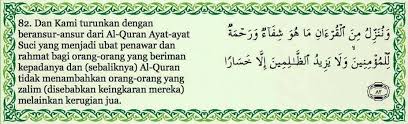 82. Dan Kami turunkan dengan
beransur-ansur dari Al-Quran Ayat-ayat
Suci yang menjadi ubat penawar dan
rahmat bagi orang-orang yang beriman
kepadanya dan (sebaliknya) Al-Quran
tidak menambahkan orang-orang yang
zalim (disebabkan keingkaran mereka)
melainkan kerugian jua.
وَنُنَزِّلُ مِنَ ٱلْقُرْءَانِ مَا هُوَ شِفَآءٌ وَرَحْمَةٌ
لِّلْمُؤْمِنِينَ ۙ وَلَا يَزِيدُ ٱلظَّـٰلِمِينَ إِلَّا خَسَارًا
٨٢